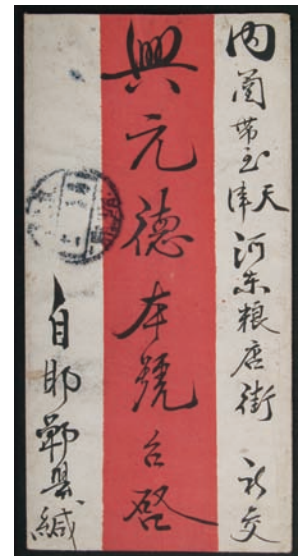 内函带至天津河东粮店街 祈交
興元德本號台啓
自邯鄲县緘